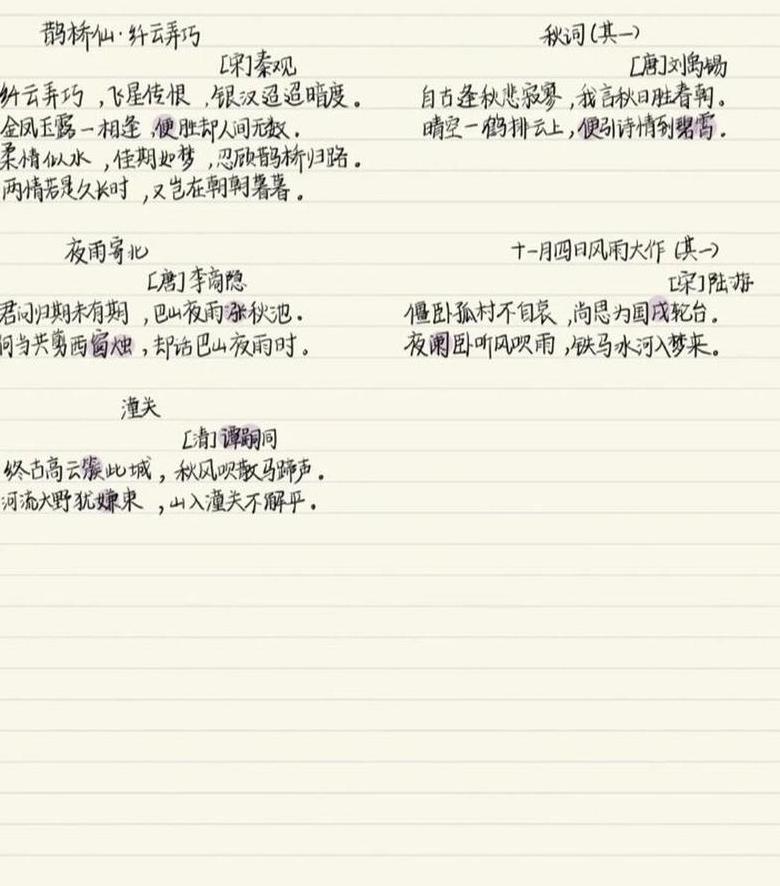 鹊桥仙·纤云弄巧
[宋]秦观
纤云弄巧,飞星传恨,银汉迢迢暗度。
金风玉露一相逢,便胜却人间无数。
柔情似水,佳期如梦,忍顾鹊桥归路。
两情若是久长时,又岂在朝朝暮暮。
秋词(其一)
[唐]刘禹锡
自古逢秋悲寂寥,我言秋日胜春朝。
晴空一鹤排云上,便引诗情到碧霄。
夜雨寄北
[唐]李商隐
君问归期未有期,巴山夜雨涨秋池.
何当共剪西窗烛,却话巴山夜雨时.
十一月四日风雨大作(其一)
[宋]陆游
僵卧孤村不自哀,尚思为国戍轮台.
夜阑卧听风吹雨,铁马冰河入梦来。
潼关
[清]谭嗣同
终古高云簇此城,秋风吹散马蹄声.
河流大野犹嫌束,山入潼关不解平.